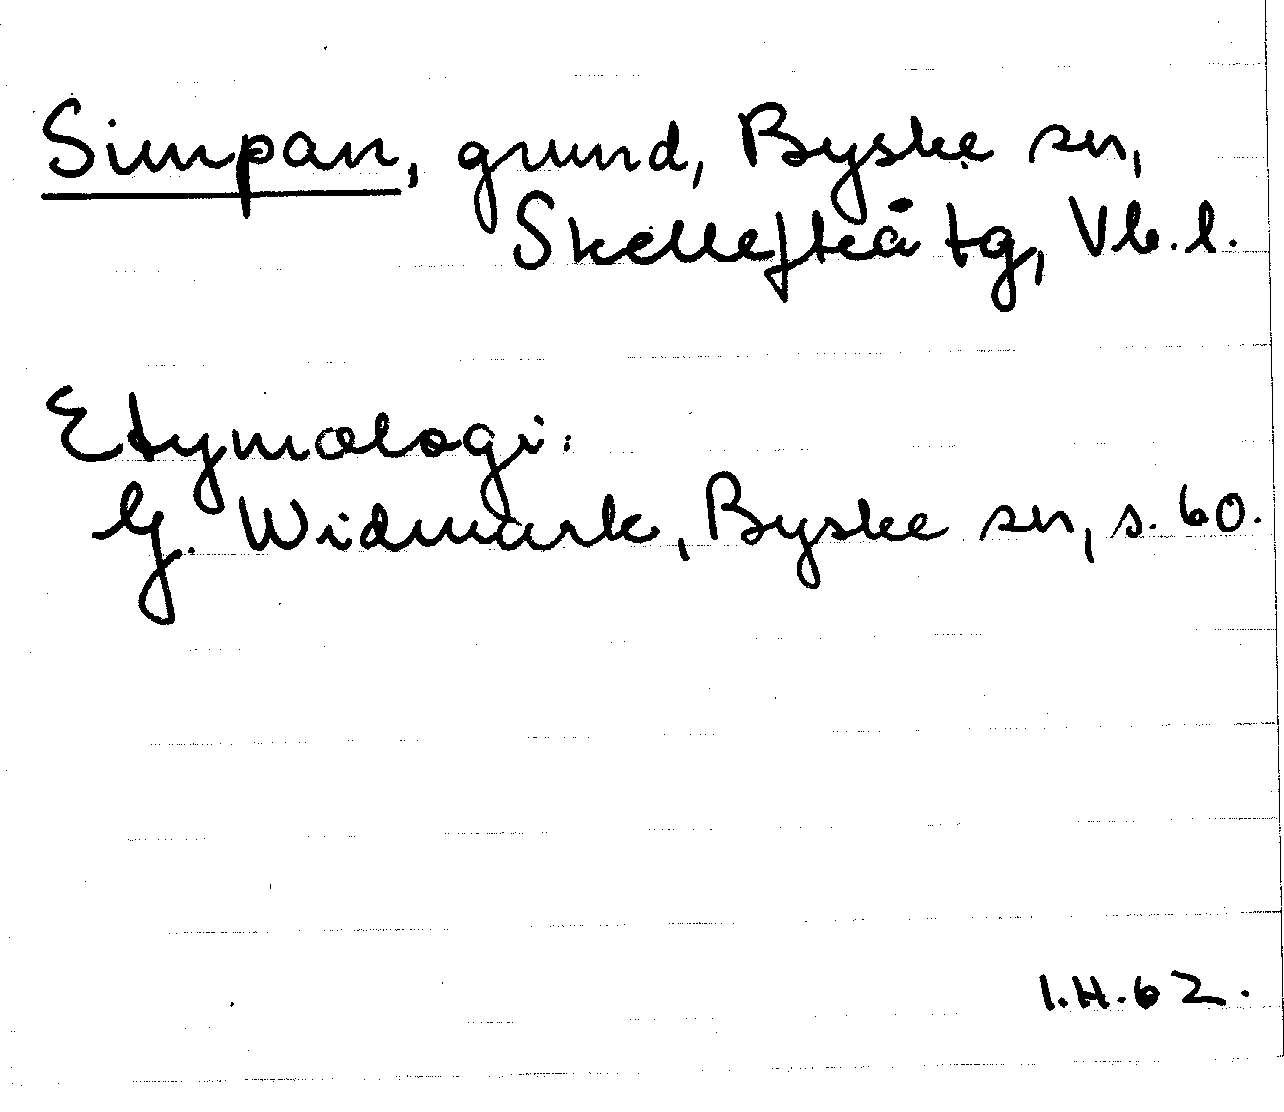 Simpan, grund, Byske sn,
Skellefteå tg, Vb.l.
Etymologi:
G. Widmark, Byske sn, s. 60.
I.H.62.